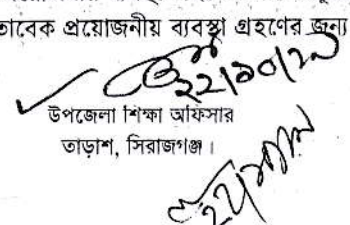 তাবেক প্রয়োজনীয় ব্যবস্থা গ্রহণের জন্য
২২/১০/২
উপজেলা শিক্ষা অফিসার
তাড়াশ, সিরাজগঞ্জ।